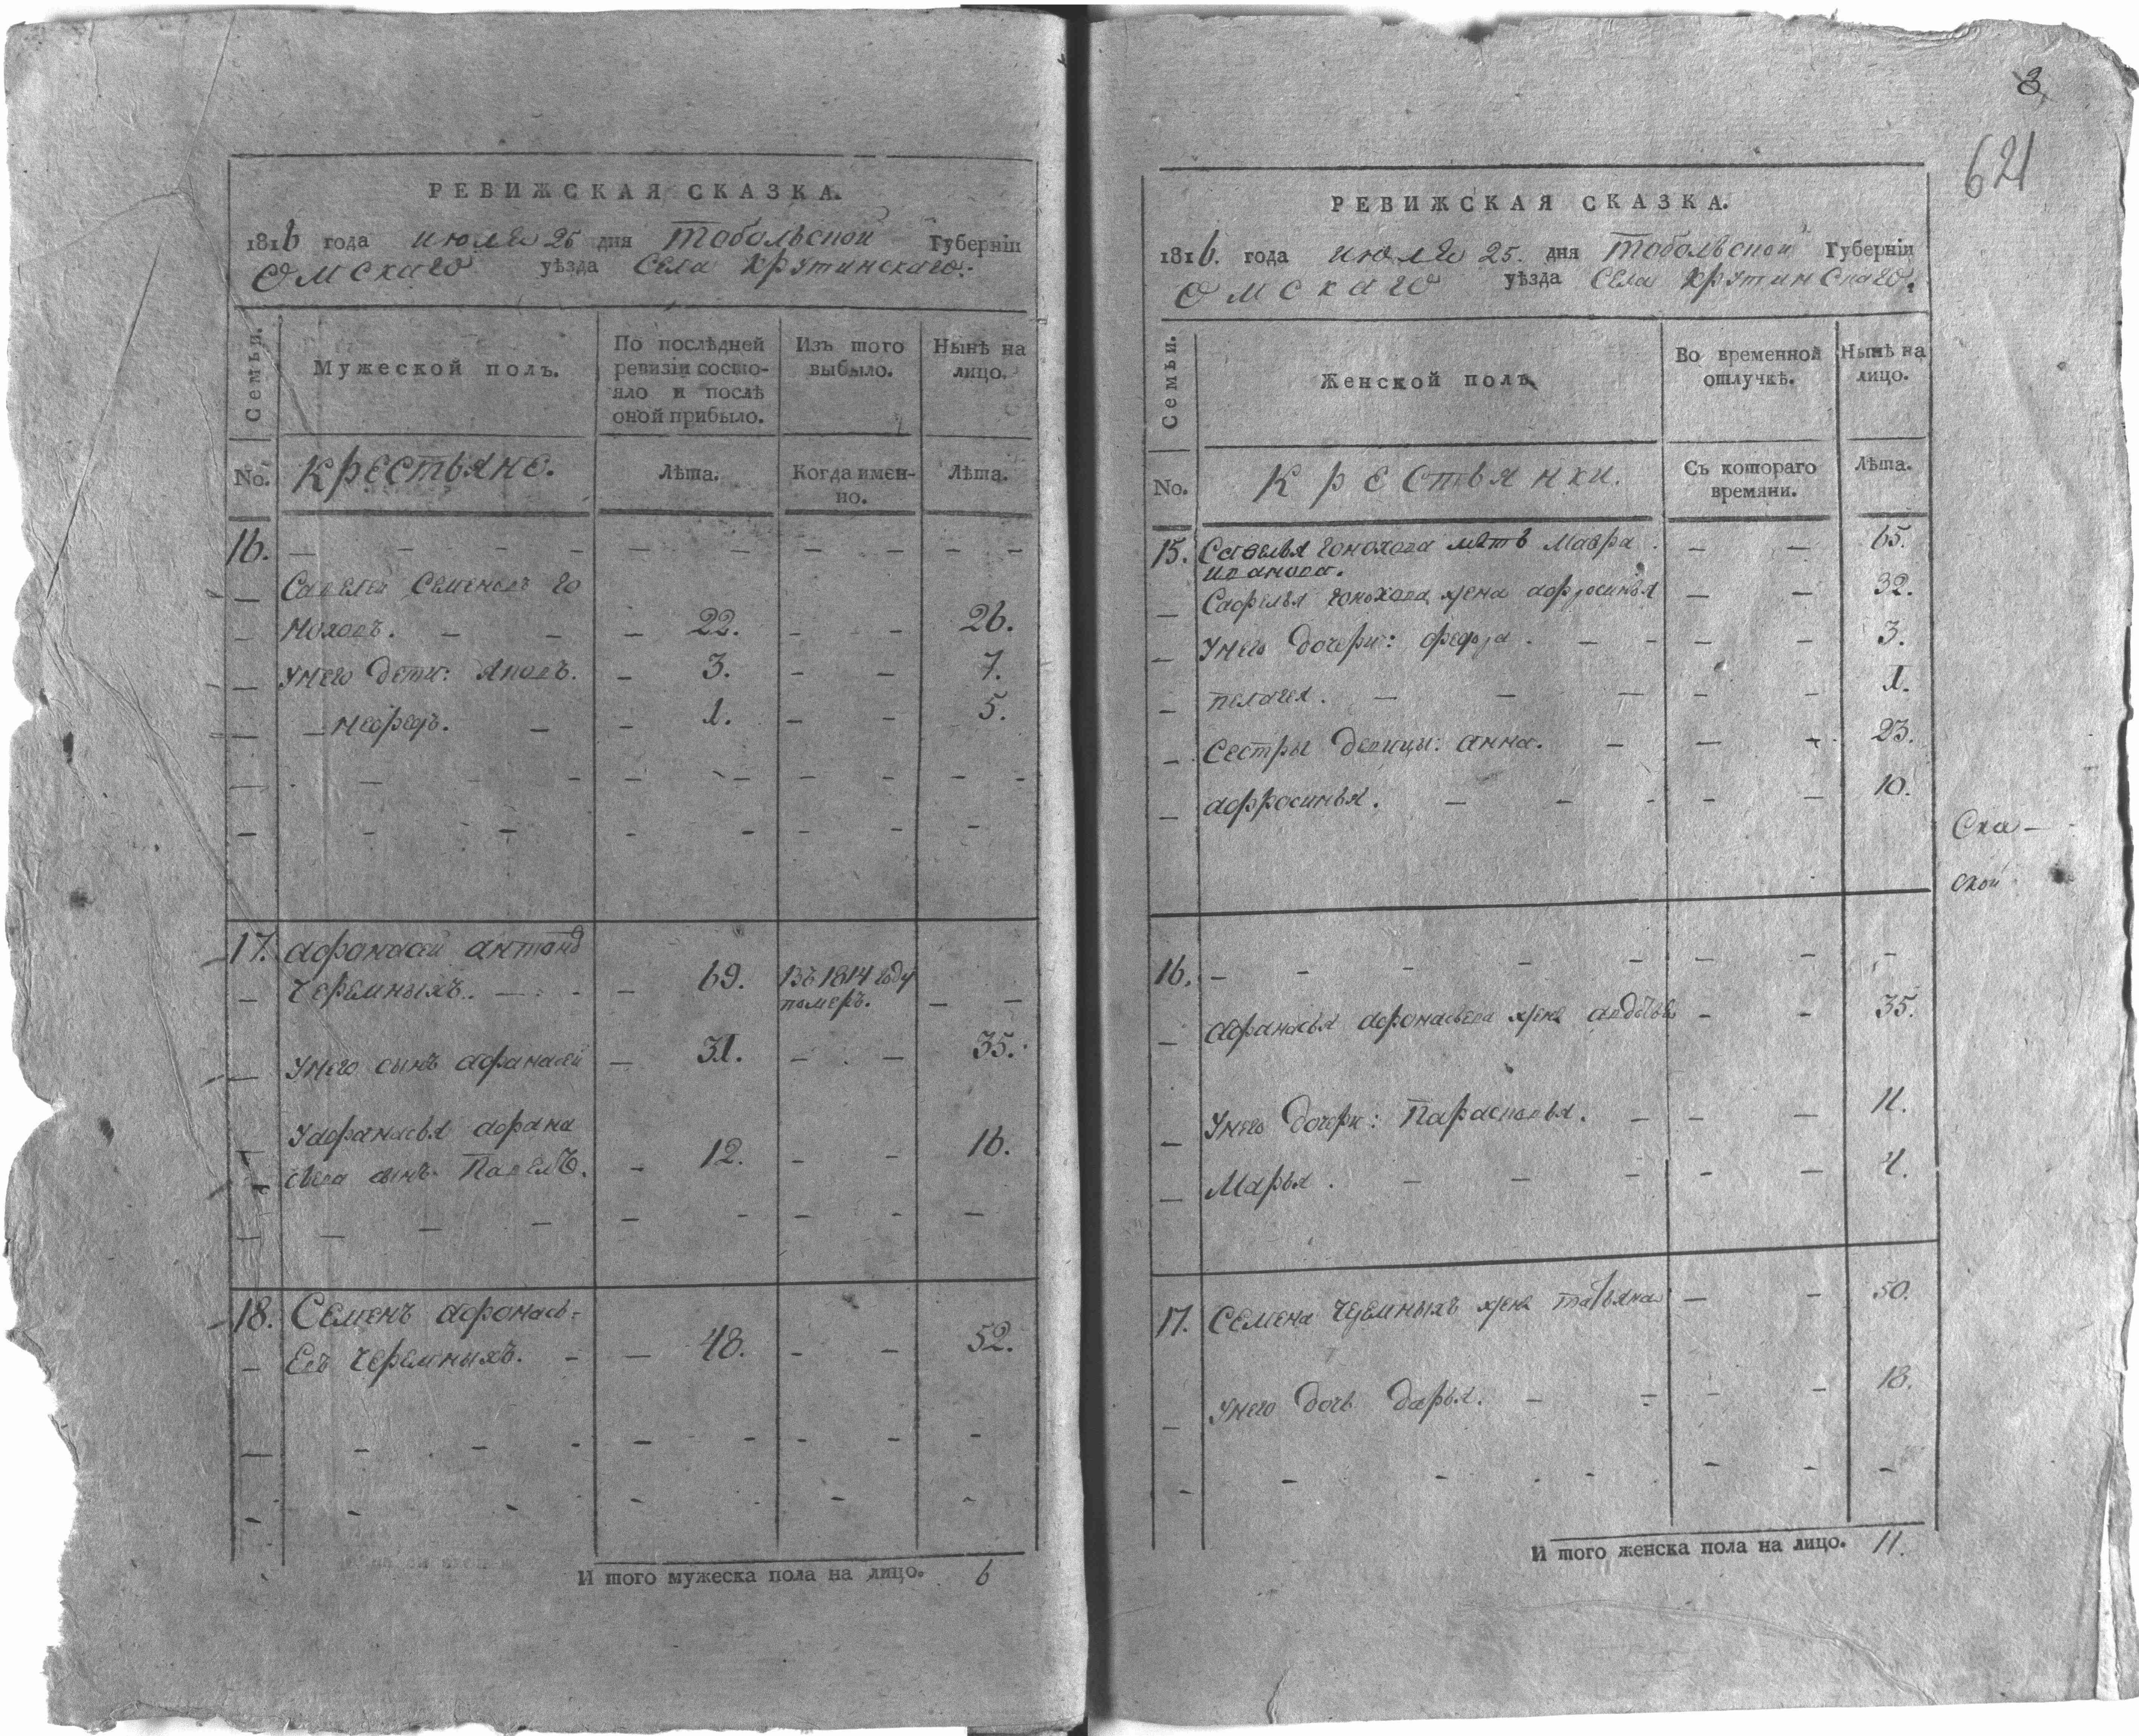 РЕВИЖСКАЯ СКАЗКА.
1816 года июля 25 дня Тобольской Губернїи
Омскаго уѣзда Села Крутинскаго.
Семьи.
Мужеской полъ.
По послѣдней ревизїи состо-
яло и послѣ
оной прибыло.
Изъ того выбыло.
Нынѣ на лицо.
No.
Крестьяне.
Лѣта.
Когда имен-
но.
Лѣта.
16.
Савелей Семеновъ Го
ноховъ. 22. 26.
Унего дети: Яковъ. 3. 7.
Нефедъ. 1. 5.
17. Афонасей Антоно
Черемныхъ. 69. Въ 1814 году
померъ.
Унего сынъ Афанасей 31. 35.
У Афанасья Афана
сьева сынъ Павелъ. 12. 16.
18. Семенъ Афонась-
евъ Черемныхъ. 48. 52.
И того мужеска пола на лицо. 6
3
621
РЕВИЖСКАЯ СКАЗКА.
1816. года июля 25. дня Тобольской Губернїи
Омскаго уѣзда Села Крутинскаго.
Семьи.
Женской полъ
Во временной
отлучкѣ.
Нынѣ на
лицо.
No.
Крестьянки.
Съ котораго
времяни.
Лѣта.
15. Савелья Гонохова мать Мавра 65.
Иванова.
Савелья Гонохова жена Афросинья 32.
Унего дочери: Федра. 3.
Пелагея. 1.
Сестры девицы: Анна. 23.
Афросинья. 10.
Ска-
ской
16.
Афанасья Афонасьева жена Авдотья 35.
Унего дочери: Парасковья. 11.
Марья. 4.
17. Семена Черемныхъ жена Татьяна 50.
Унего дочь Дарья. 18.
И того женска пола на лицо. 11.